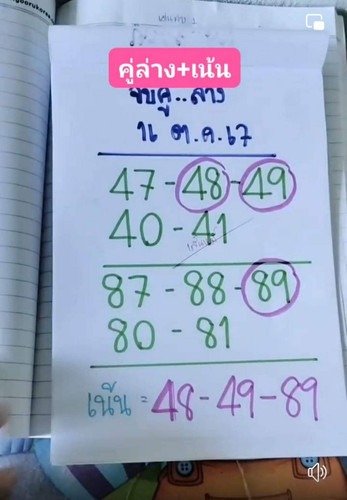 คู่ล่าง+เน้น
จับคู่..ล่าง
16 ต.ค.67
47-48-49
40-41
87-88-89
80-81
เน้น = 48-49-89